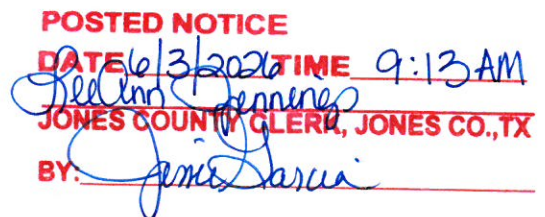 POSTED NOTICE
DATE 6/3/2026 TIME 9:13 AM
LeeAnn Jennings
JONES COUNTY CLERK, JONES CO., TX
BY: Jamie Garcia